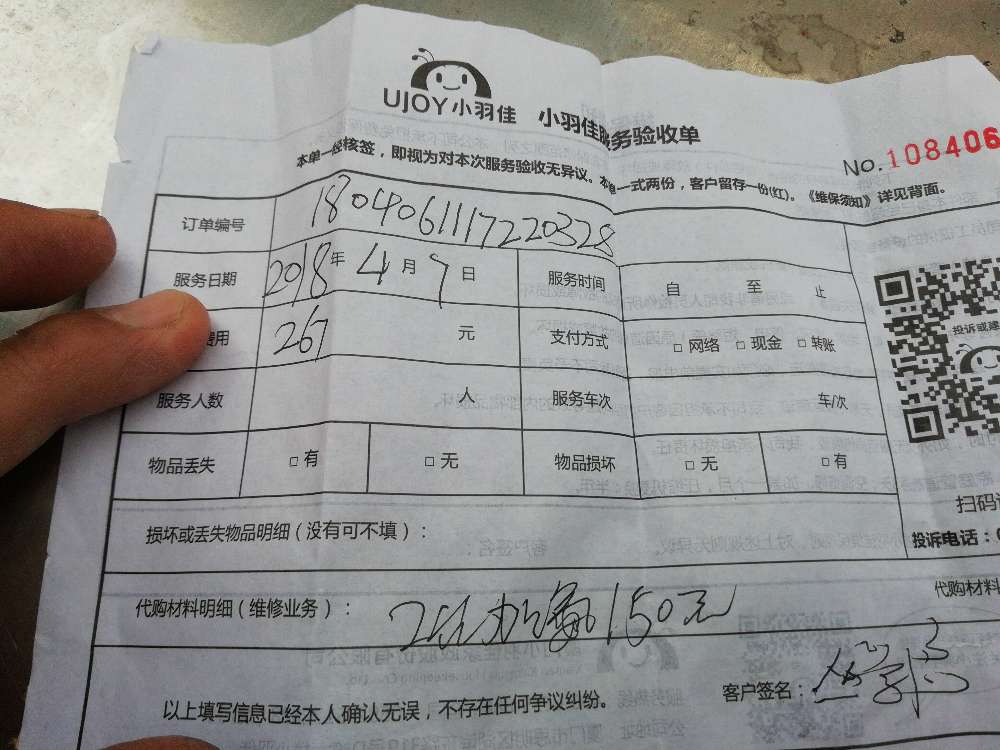 UJOY小羽佳 小羽佳服务验收单
No.108406
本单一经核签，即视为对本次服务验收无异议。本单一式两份，客户留存一份(红)。《维保须知》详见背面。
订单编号 1804061117220328
服务日期 2018年 4月 7日 服务时间 自 至 止
费用 267 元 支付方式 □ 网络 □ 现金 □ 转账
服务人数 人 服务车次 车/次
物品丢失 □ 有 □ 无 物品损坏 □ 无 □ 有
投诉或
扫码
损坏或丢失物品明细（没有可不填）：
投诉电话：
代购材料明细（维修业务）： 150元
代购材料
以上填写信息已经本人确认无误，不存在任何争议纠纷。
客户签名：